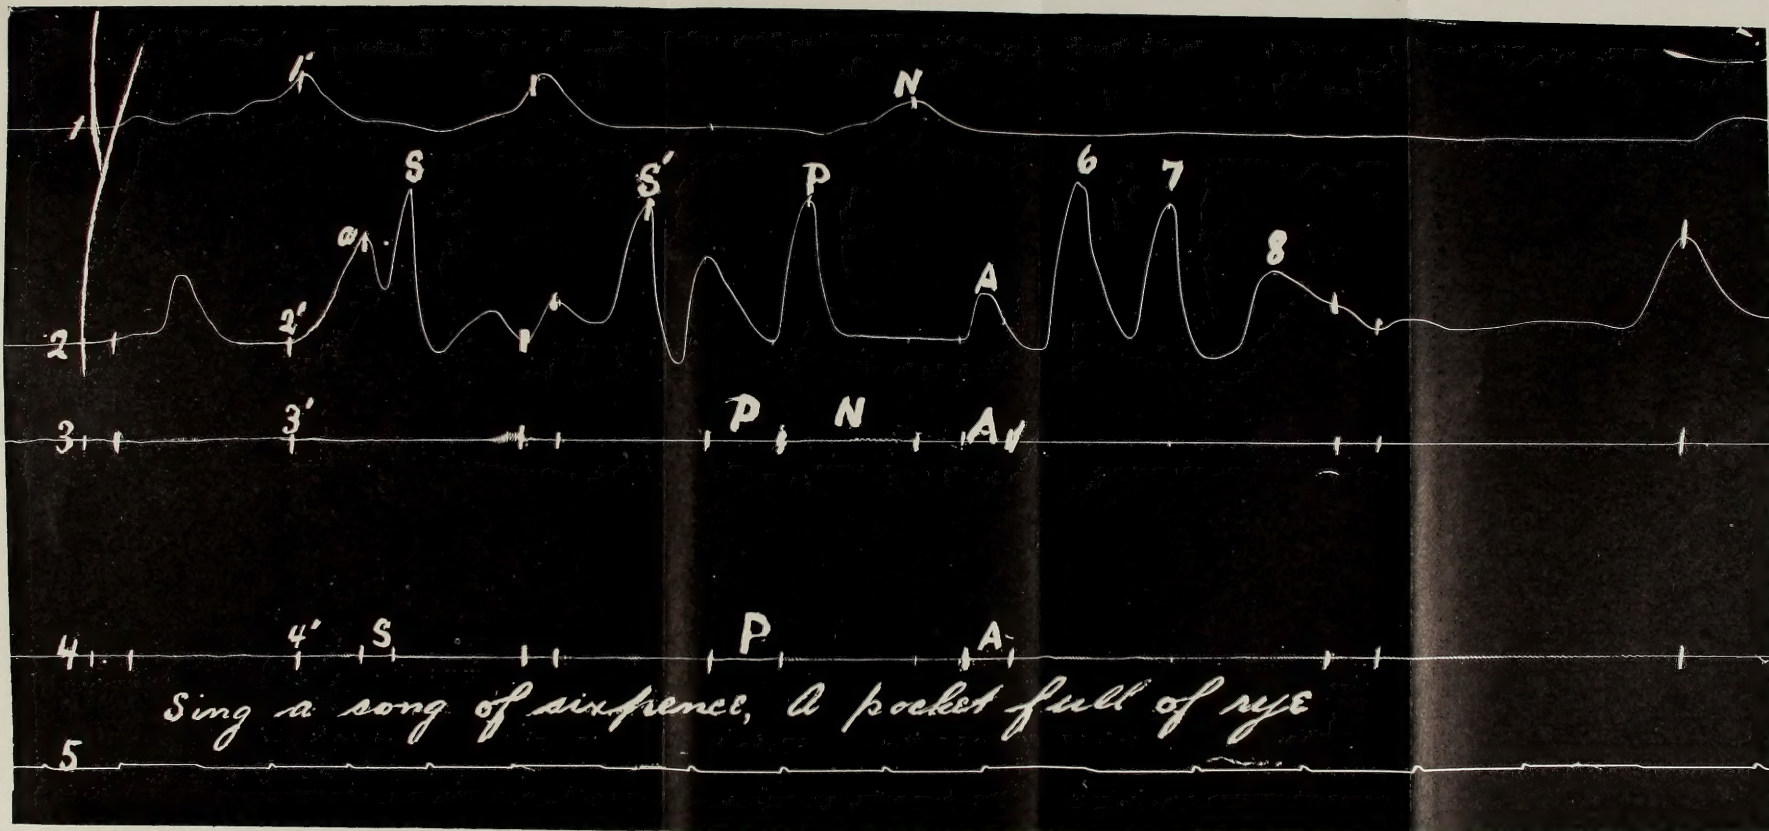 1' N
1
S S' P 6 7
a A 8
2 2'
3 3' P N A
4 4' S P A
Sing a song of sixpence, A pocket full of rye
5